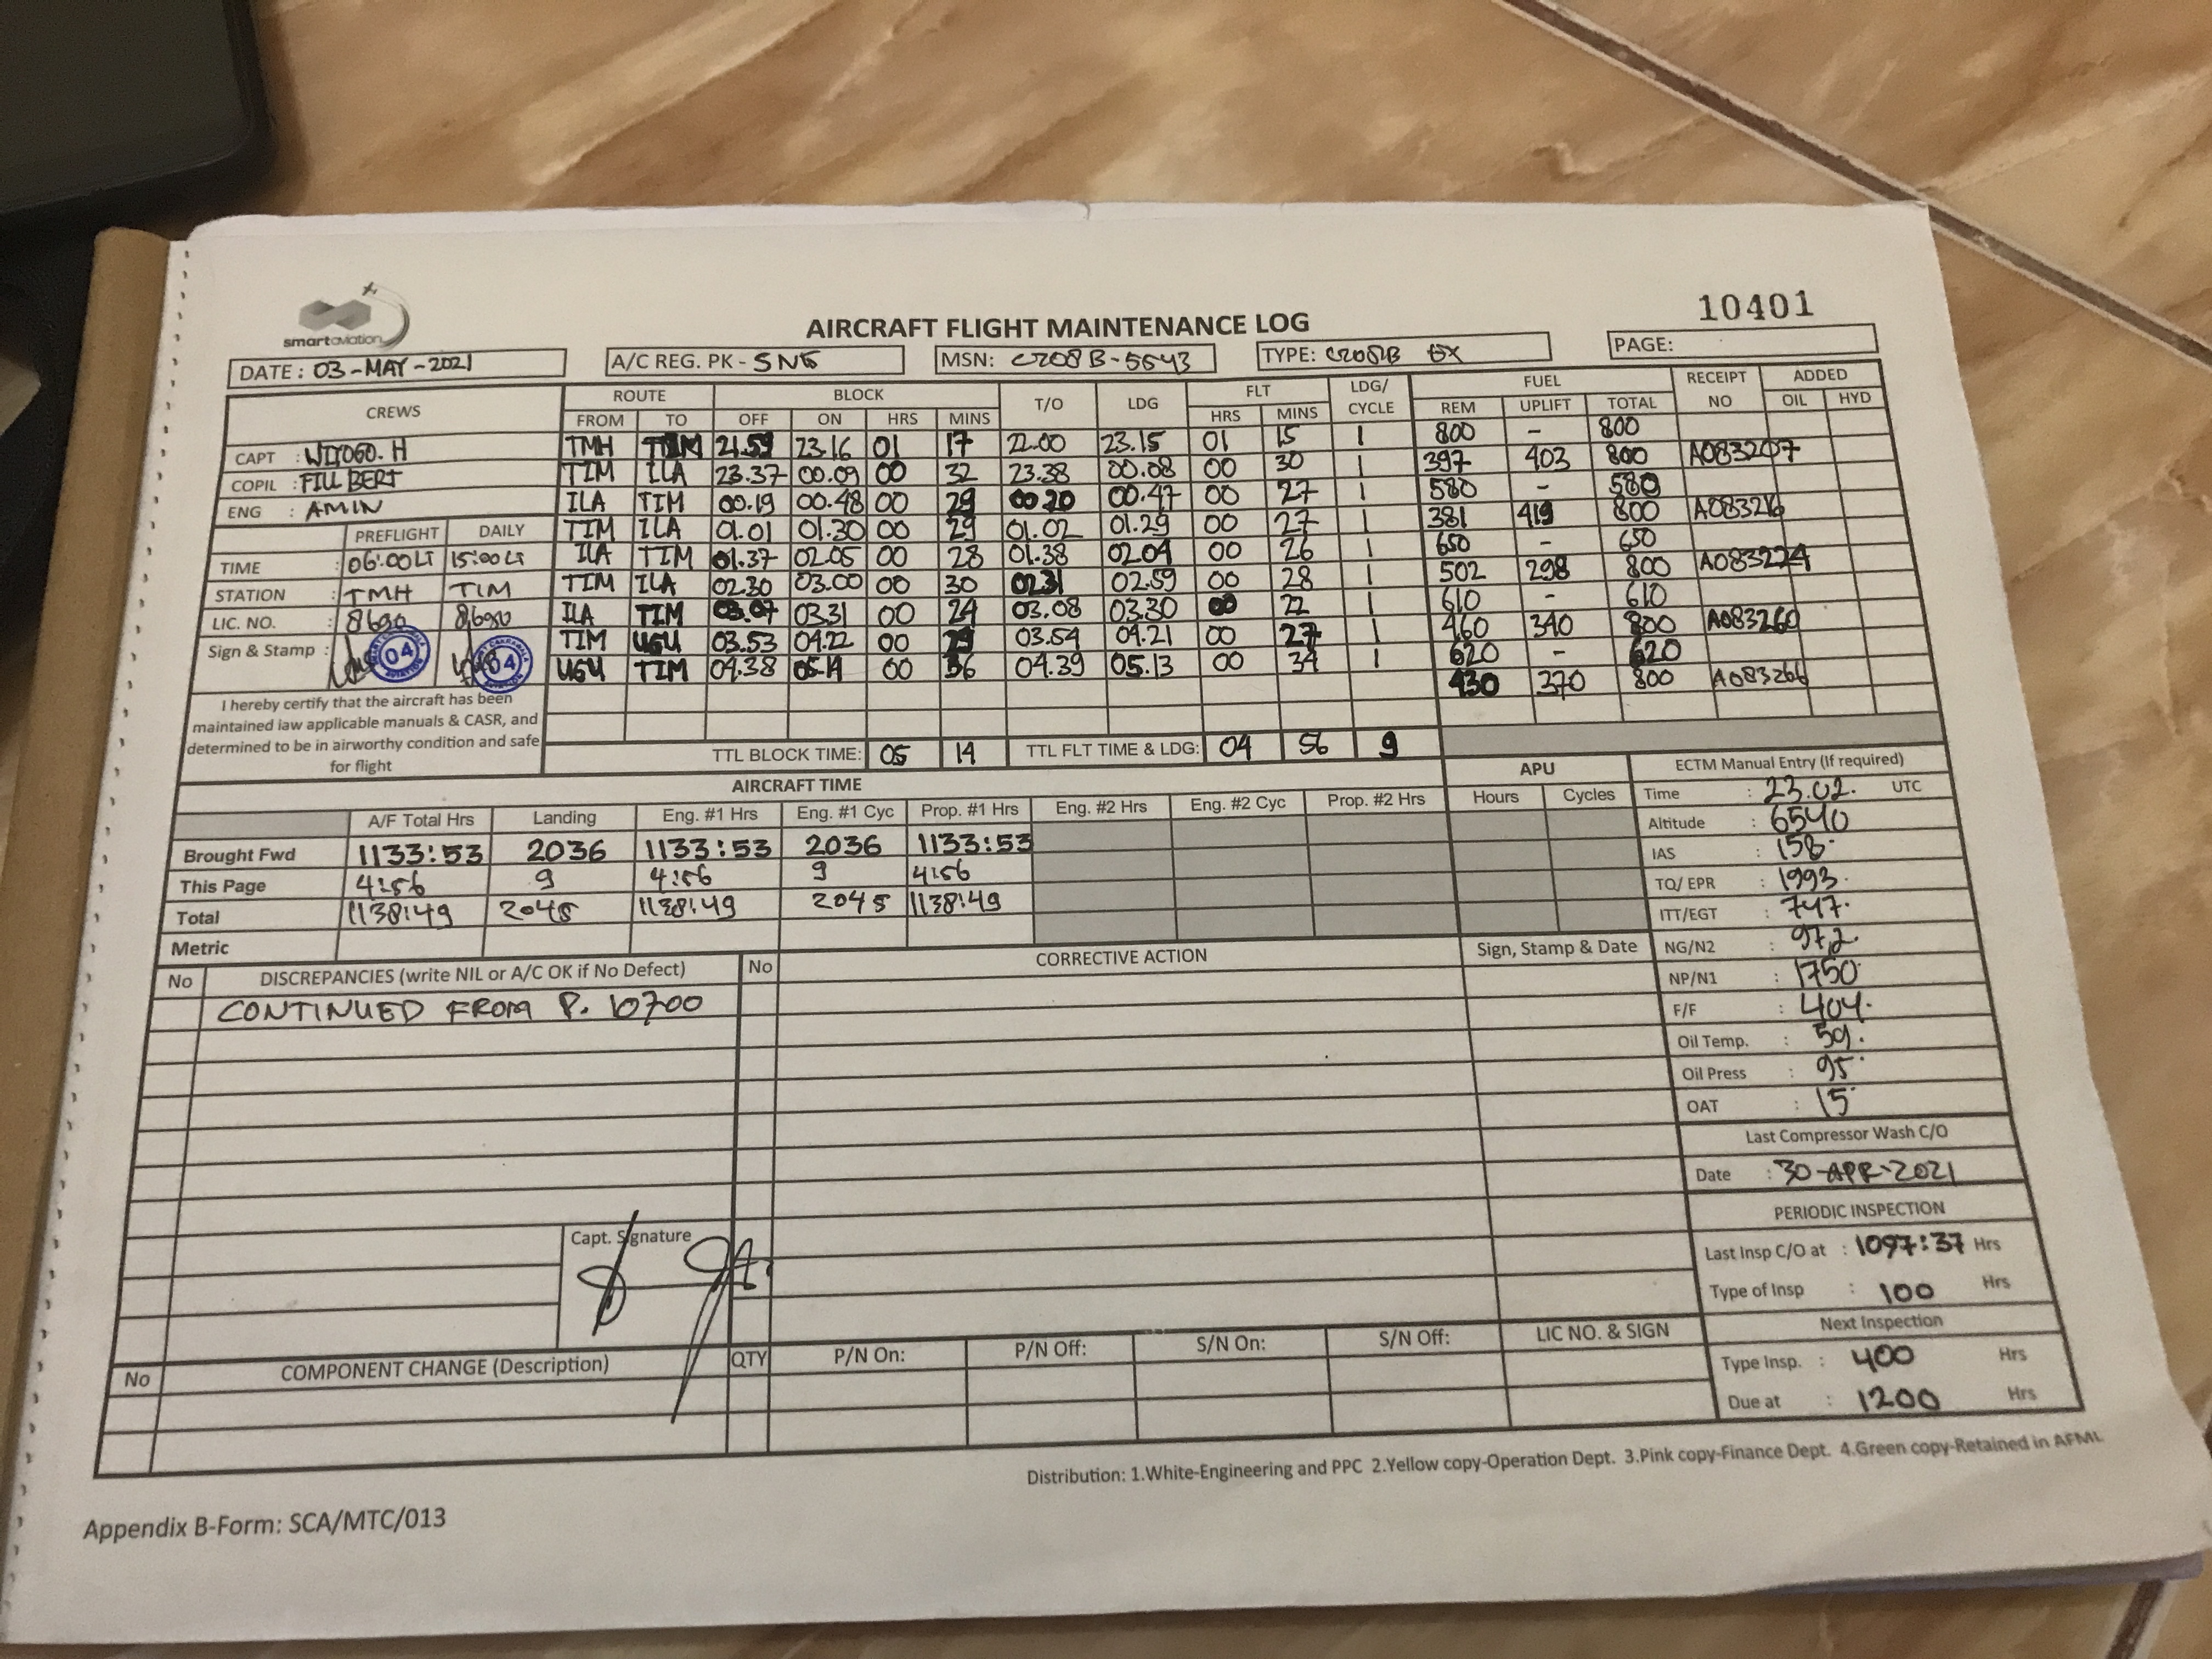 smartaviation
10401
AIRCRAFT FLIGHT MAINTENANCE LOG
DATE : 03-MAY-2021 A/C REG. PK - SNE MSN: C208B-5543 TYPE: C208B EX PAGE:
CREWS ROUTE BLOCK T/O LDG FLT LDG/ CYCLE FUEL RECEIPT NO ADDED
FROM TO OFF ON HRS MINS HRS MINS REM UPLIFT TOTAL OIL HYD
CAPT : WIYOGO. H
COPIL : FILLBERT
ENG : AMIN
TMH TIM 21.59 23.16 01 17 22.00 23.15 01 15 1 800 - 800
TIM ILA 23.37 00.09 00 32 23.38 00.08 00 30 1 397 403 800 A083207
ILA TIM 00.19 00.48 00 29 00 20 00.47 00 27 1 580 - 580
TIM ILA 01.01 01.30 00 29 01.02 01.29 00 27 1 381 419 800 A083216
ILA TIM 01.37 02.05 00 28 01.38 02.04 00 26 1 650 - 650
TIM ILA 02.30 03.00 00 30 02.31 02.59 00 28 1 502 298 800 A083224
ILA TIM 03.07 03.31 00 24 03.08 03.30 00 22 1 610 - 610
TIM UGU 03.53 04.22 00 29 03.54 04.21 00 27 1 460 340 800 A083260
UGU TIM 04.38 05.14 00 36 04.39 05.13 00 34 1 620 - 620
430 370 800 A083266
PREFLIGHT DAILY
TIME : 06:00LT 15:00LT
STATION : TMH TIM
LIC. NO. : 8690 8690
Sign & Stamp : 04 04
I hereby certify that the aircraft has been
maintained iaw applicable manuals & CASR, and
determined to be in airworthy condition and safe
for flight
TTL BLOCK TIME: 05 14 TTL FLT TIME & LDG: 04 56 9
AIRCRAFT TIME APU
A/F Total Hrs Landing Eng. #1 Hrs Eng. #1 Cyc Prop. #1 Hrs Eng. #2 Hrs Eng. #2 Cyc Prop. #2 Hrs Hours Cycles
Brought Fwd 1133:53 2036 1133:53 2036 1133:53
This Page 4:56 9 4:56 9 4:56
Total 1138:49 2045 1138:49 2045 1138:49
Metric
ECTM Manual Entry (If required)
Time : 23.02. UTC
Altitude : 6540
IAS : 158.
TQ/ EPR : 1993.
ITT/EGT : 747.
NG/N2 : 97,2.
NP/N1 : 1750.
F/F : 404.
Oil Temp. : 59.
Oil Press : 95.
OAT : 15
Last Compressor Wash C/O
Date : 30-APR-2021
PERIODIC INSPECTION
Last Insp C/O at : 1097:37 Hrs
Type of Insp : 100 Hrs
Next Inspection
Type Insp. : 400 Hrs
Due at : 1200 Hrs
No DISCREPANCIES (write NIL or A/C OK if No Defect) No CORRECTIVE ACTION Sign, Stamp & Date
CONTINUED FROM P. 10700
Capt. Signature
No COMPONENT CHANGE (Description) QTY P/N On: P/N Off: S/N On: S/N Off: LIC NO. & SIGN
Distribution: 1.White-Engineering and PPC 2.Yellow copy-Operation Dept. 3.Pink copy-Finance Dept. 4.Green copy-Retained in AFML
Appendix B-Form: SCA/MTC/013